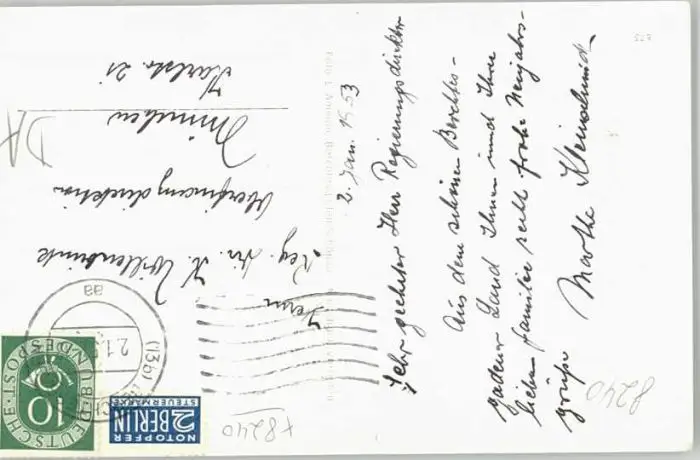 2. Jan. 1953
Sehr geehrter Herr Regierungsdirektor
Aus dem schönen Berchtes-
gadener Land Ihnen und Ihrer
lieben Familie recht frohe Neujahrs-
grüße
Marthe Kleinschmidt
Herrn
Reg. Dir. K. Willenbrink
Oberfinanzdirektion
München
Karlstr. 21
DA
DEUTSCHE BUNDESPOST
10
NOTOPFER
2 BERLIN
STEUERMARKE
(13b)
2.1.
aa
+8240
8240